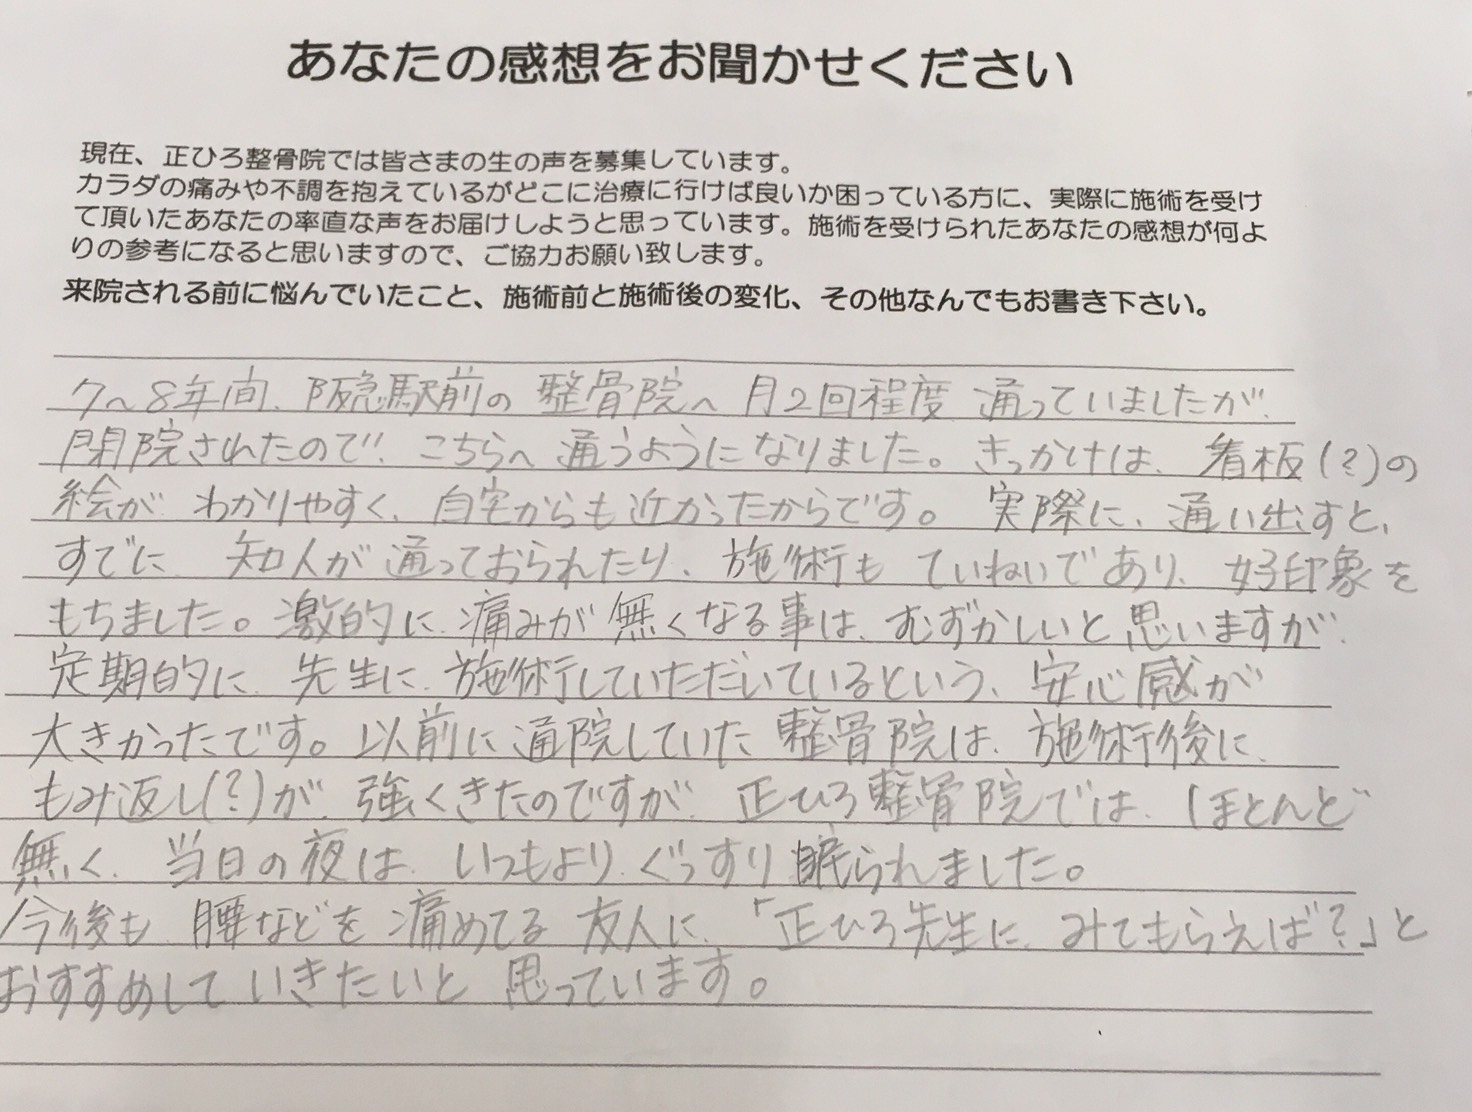 あなたの感想をお聞かせください
現在、正ひろ整骨院では皆さまの生の声を募集しています。
カラダの痛みや不調を抱えているがどこに治療に行けば良いか困っている方に、実際に施術を受け
て頂いたあなたの率直な声をお届けしようと思っています。施術を受けられたあなたの感想が何よ
りの参考になると思いますので、ご協力お願い致します。
来院される前に悩んでいたこと、施術前と施術後の変化、その他なんでもお書き下さい。
7~8年間、阪急駅前の整骨院へ月2回程度通っていましたが、
閉院されたので、こちらへ通うようになりました。きっかけは、看板(?)の
絵がわかりやすく、自宅からも近かったからです。実際に、通い出すと、
すでに、知人が通っておられたり、施術もていねいであり、好印象を
もちました。激的に、痛みが無くなる事は、むずかしいと思いますが、
定期的に、先生に、施術していただいているという、安心感が
大きかったです。以前に通院していた整骨院は、施術後に、
もみ返し(?)が、強くきたのですが、正ひろ整骨院では、ほとんど
無く、当日の夜は、いつもより、ぐっすり眠られました。
今後も、腰などを痛めてる友人に、「正ひろ先生に、みてもらえば?」と
おすすめしていきたいと思っています。